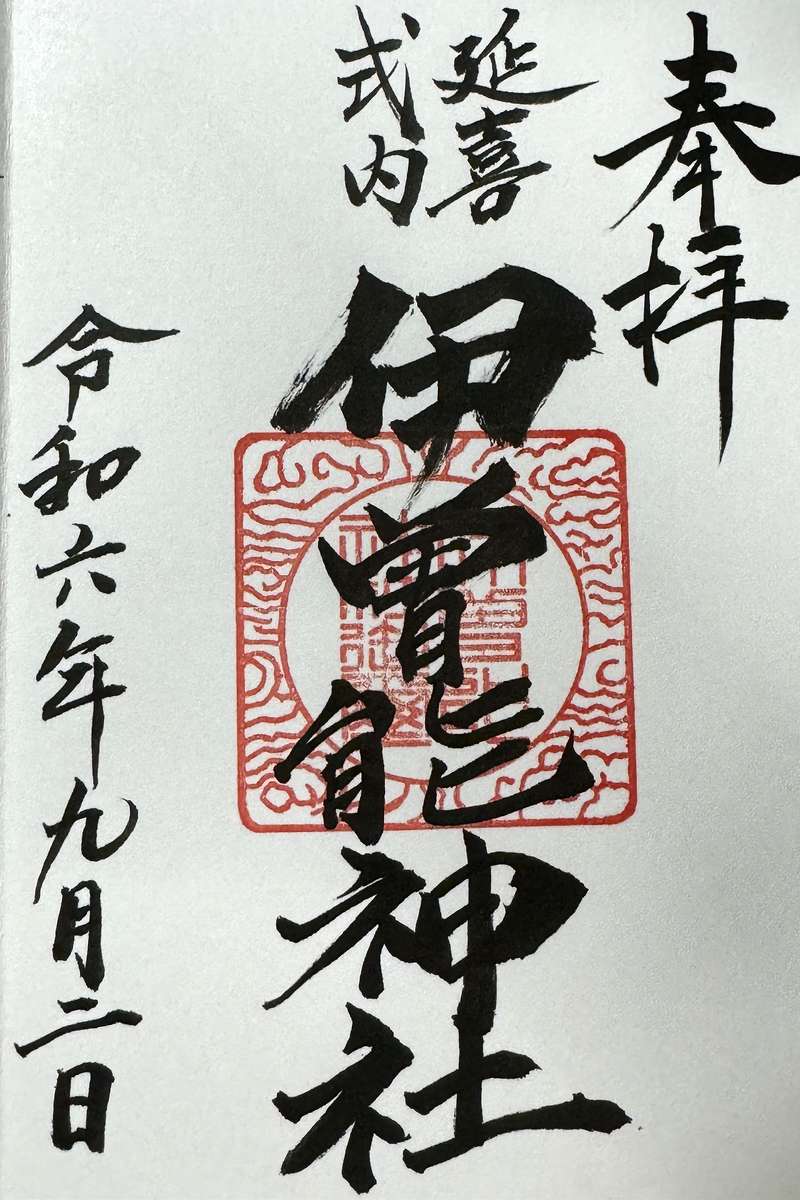 奉拝
延喜
式内
伊曽能神社
令和六年九月二日